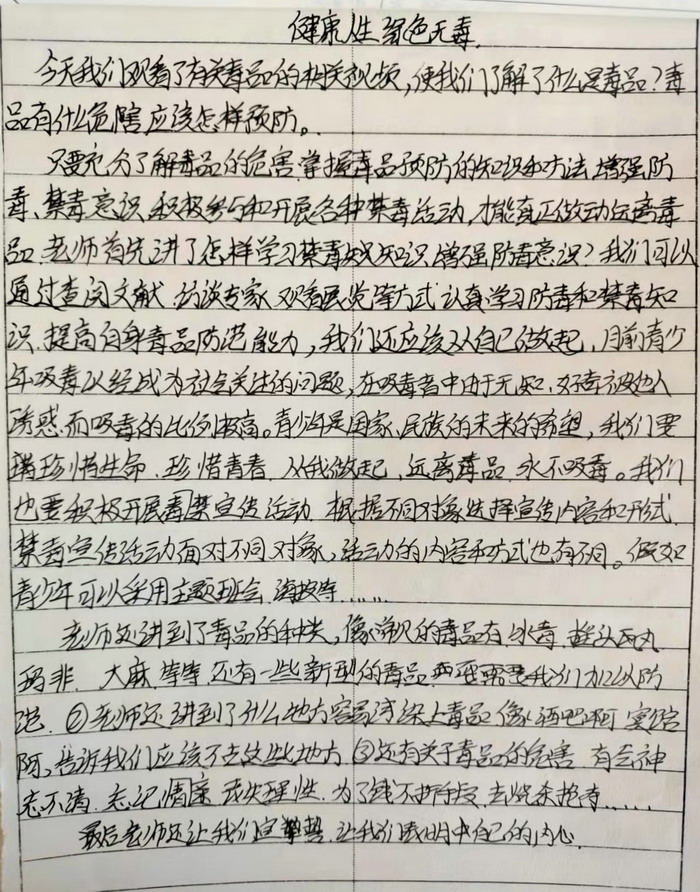 健康人生绿色无毒.
今天我们观看了有关毒品的相关视频,使我们了解了什么是毒品?毒
品有什么危害应该怎样预防。
只要充分了解毒品的危害.掌握毒品预防的知识和方法.增强防
毒、禁毒意识.积极参与和开展各种禁毒活动.才能真正做动远离毒
品.老师首先讲了怎样学习禁毒知识.增强防毒意识?我们可以
通过查阅文献.访谈专家.观看展览等方式.认真学习防毒和禁毒知
识.提高自身毒品防范能力,我们还应该从自己做起,目前青少
年吸毒以经成为社会关注的问题,在吸毒者中由于无知.好奇被他人
诱惑.而吸毒的比例极高。青少年是国家.民族的未来的希望,我们要
珍惜生命.珍惜青春.从我做起.远离毒品.永不吸毒。我们
也要积极开展毒禁宣传活动.根据不同对象选择宣传内容和形式
禁毒宣传活动面对不同对象,活动的内容和方式也有不同。假如
青少年可以采用主题班会.海报等……
老师还讲到了毒品的种类,像常见的毒品有.冰毒.摇头丸
玛非.大麻.等等.还有一些新型的毒品.需要我们加以防
范.②老师还讲到了什么地方容易沾染上毒品.像酒吧啊.宾馆
阿,告诉我们应该不去这些地方.③还有关于毒品的危害.有会神
志不清.忘记情.丧失理性.为了钱不择手段.去烧杀抢夺……
最后老师还让我们宣誓.让我们表明中自己的内心.